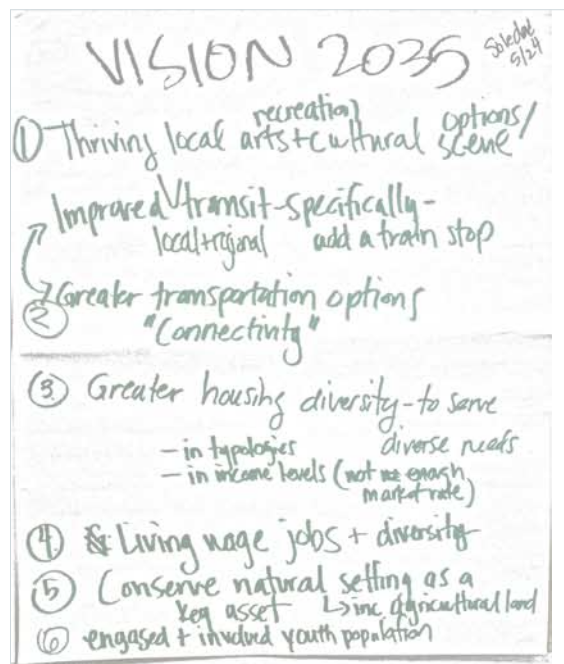 VISION 2035
Soledad
5/24
① Thriving local arts + cultural recreation options/
scene
Improved V transit - specifically -
local + regional add a train stop
② Greater transportation options
"Connectivity"
③ Greater housing diversity - to serve
diverse needs
- in typologies
- in income levels (not enough
market rate)
④ & Living wage jobs + diversity
⑤ Conserve natural setting as a
key asset ↳ inc agricultural land
⑥ engaged + involved youth population